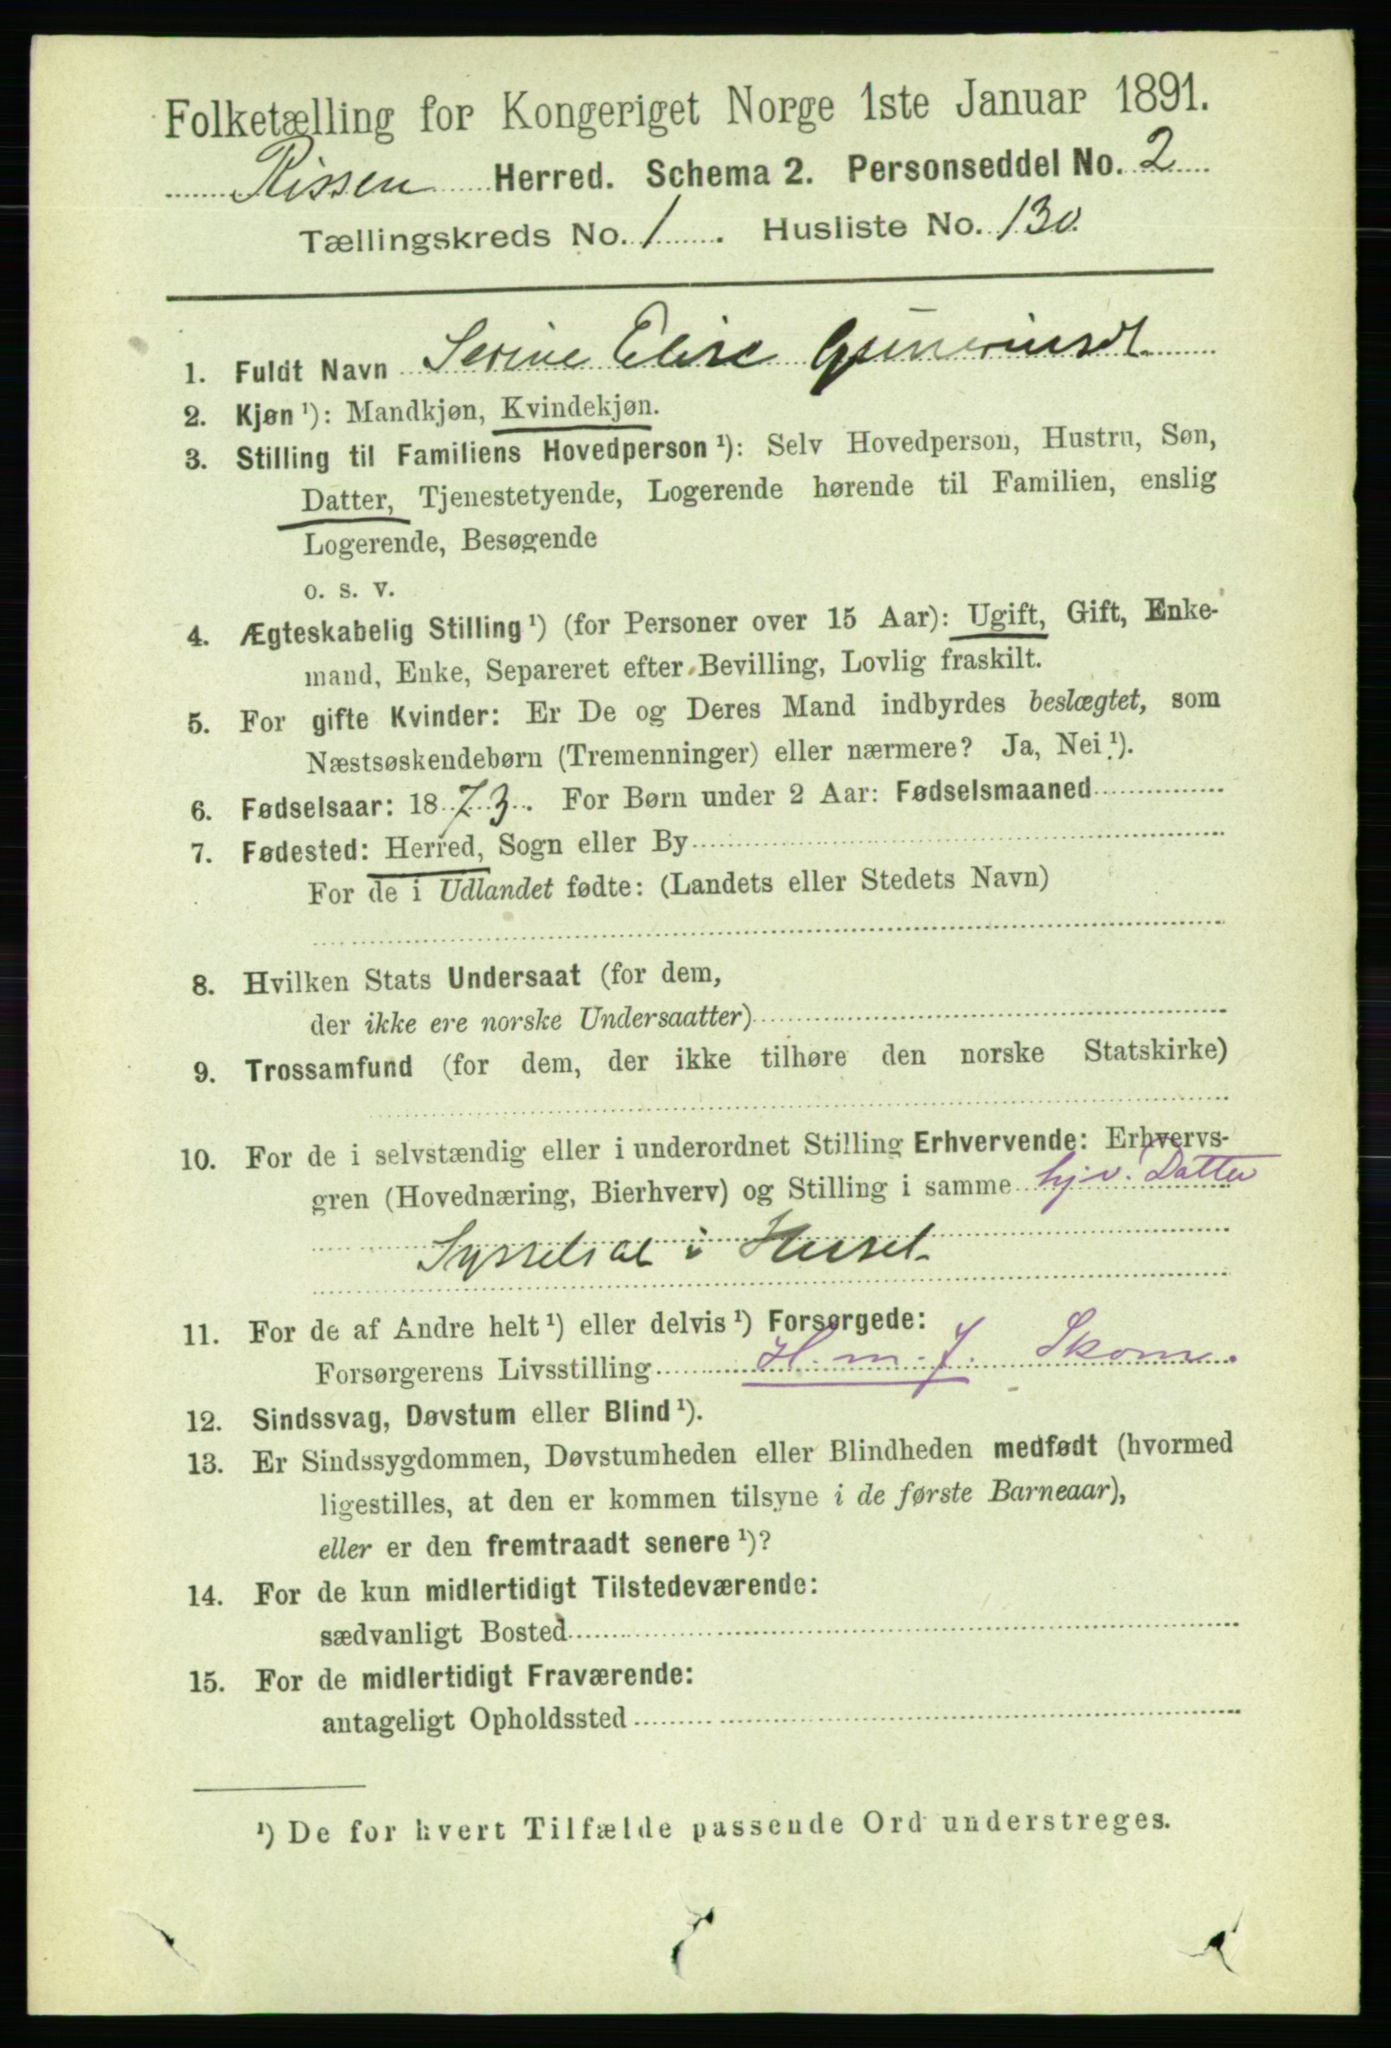 Folketælling for Kongeriget Norge 1ste Januar 1891.
Rissen Herred. Schema 2. Personseddel No. 2
Tællingskreds No. 1. Husliste No. 130.
1. Fuldt Navn Serine Elise
2. Kjøn ¹): Mandkjøn, Kvindekjøn.
3. Stilling til Familiens Hovedperson ¹): Selv Hovedperson, Hustru, Søn,
Datter, Tjenestetyende, Logerende hørende til Familien, enslig
Logerende, Besøgende
o. s. v.
4. Ægteskabelig Stilling ¹) (for Personer over 15 Aar): Ugift, Gift, Enke-
mand, Enke, Separeret efter Bevilling, Lovlig fraskilt.
5. For gifte Kvinder: Er De og Deres Mand indbyrdes beslægtet, som
Næstsøskendebørn (Tremenninger) eller nærmere? Ja, Nei ¹).
6. Fødselsaar: 1873. For Børn under 2 Aar: Fødselsmaaned
7. Fødested: Herred, Sogn eller By
For de i Udlandet fødte: (Landets eller Stedets Navn)
8. Hvilken Stats Undersaat (for dem,
der ikke ere norske Undersaatter)
9. Trossamfund (for dem, der ikke tilhøre den norske Statskirke)
10. For de i selvstændig eller i underordnet Stilling Erhvervende: Erhvervs-
gren (Hovednæring, Bierhverv) og Stilling i samme hjv. Datter
Sysselsat i Huset
11. For de af Andre helt ¹) eller delvis ¹) Forsørgede:
Forsørgerens Livsstilling H. m. J. Skom.
12. Sindssvag, Døvstum eller Blind ¹).
13. Er Sindssygdommen, Døvstumheden eller Blindheden medfødt (hvormed
ligestilles, at den er kommen tilsyne i de første Barneaar),
eller er den fremtraadt senere ¹)?
14. For de kun midlertidigt Tilstedeværende:
sædvanligt Bosted
15. For de midlertidigt Fraværende:
antageligt Opholdssted
¹) De for hvert Tilfælde passende Ord understreges.